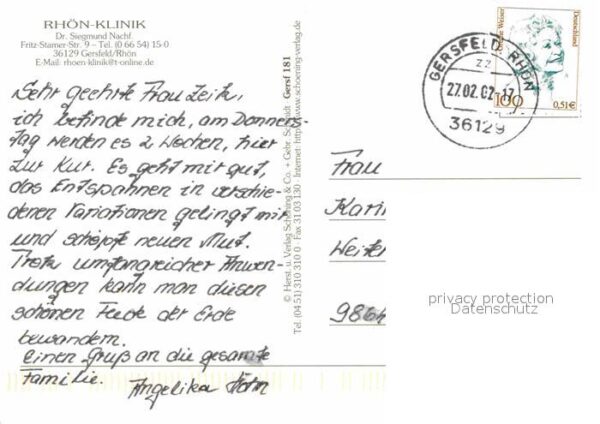 RHÖN-KLINIK
Dr. Siegmund Nachf.
Fritz-Stamer-Str. 9 – Tel. (0 66 54) 15-0
36129 Gersfeld/Rhön
E-Mail: rhoen-klinik@t-online.de
Sehr geehrte Frau
ich befinde mich, am Donners-
tag werden es 2 Wochen, hier
zur Kur. Es geht mir gut,
das Entspahnen in verschie-
denen Variationen gelingt mir
und schöpfe neuen Mut.
Trotz umfangreicher Anwen-
dungen kann man diesen
schönen Fleck der Erde
bewundern.
Einen Gruß an die gesamte
Familie.
Angelika
© Herst. u. Verlag Schöning & Co. + Gebr. Schmidt · Gersf 181
Tel. (04 51) 310 310 0 · Fax 31 03 130 · Internet: http://www.schoening-verlag.de
GERSFELD, RHÖN
zz
27.02.02-17
36129
Deutschland
100
0,51€
Frau
Karin
Weiter
986
privacy protection
Datenschutz